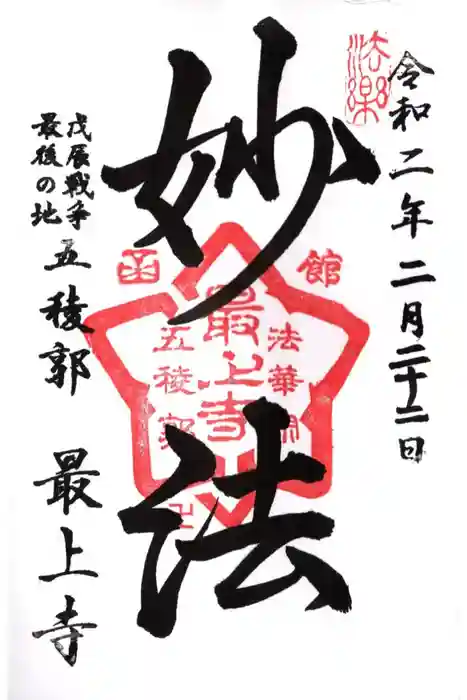 法樂
令和二年二月二十二日
妙法
函館
最上寺
法華
五稜郭
戊辰戦争
最後の地
五稜郭
最上寺